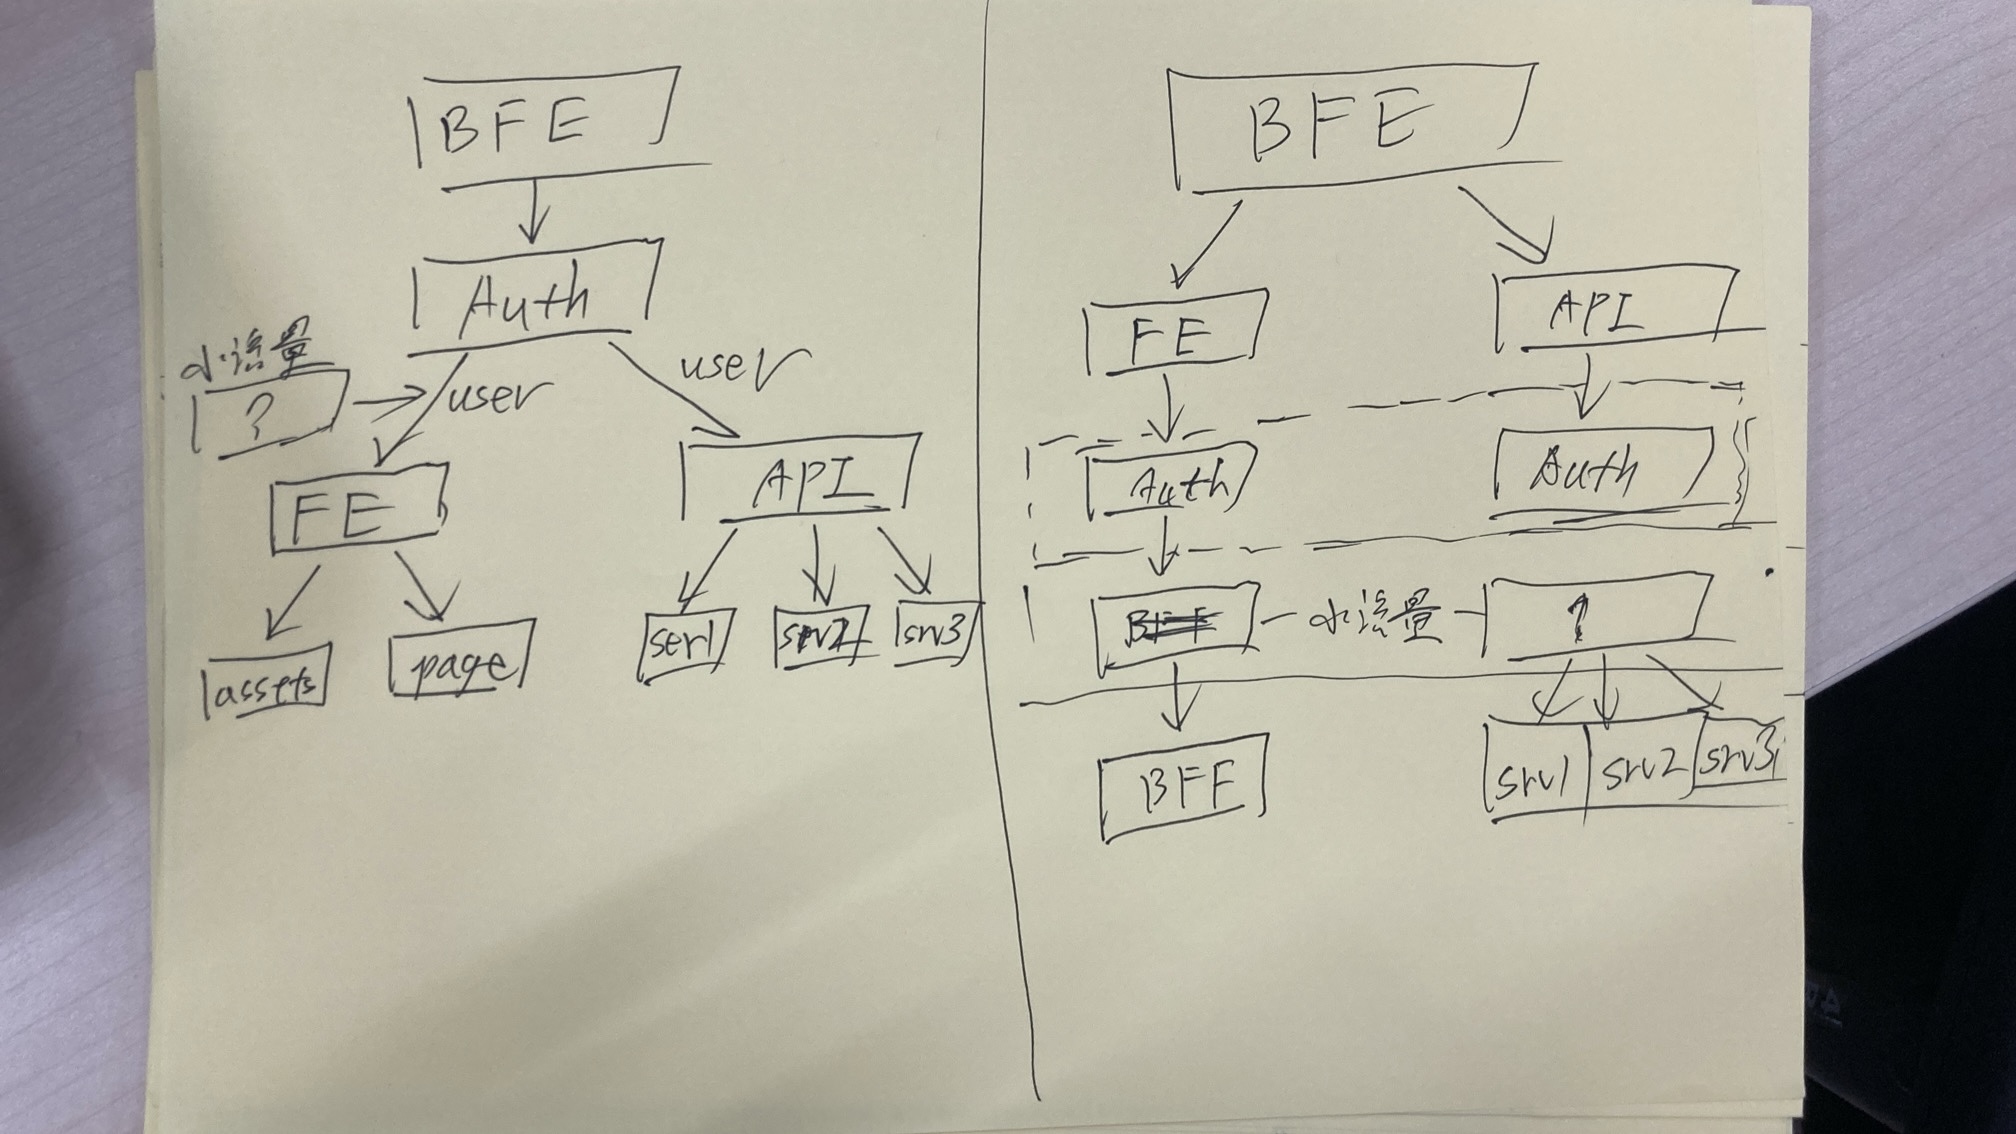 BFE
Auth
小流量
?
user
user
FE
API
assets
page
ser1
srv2
srv3
BFE
FE
API
Auth
Auth
小流量
BFF
srv1
srv2
srv3